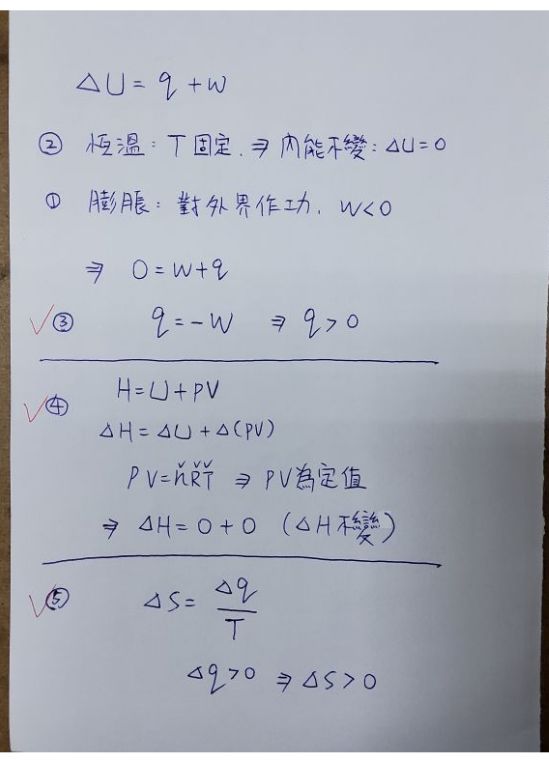 ΔU = q + w
② 恆溫：T固定. ⇒ 內能不變：ΔU=0
① 膨脹：對外界作功. W<0
⇒ 0 = W+q
✓③ q = -W ⇒ q > 0
✓④ H=U+PV
ΔH = ΔU + Δ(PV)
PV=ňŘŤ ⇒ PV為定值
⇒ ΔH = 0 + 0 (ΔH不變)
✓⑤ ΔS = Δq/T
Δq>0 ⇒ ΔS>0